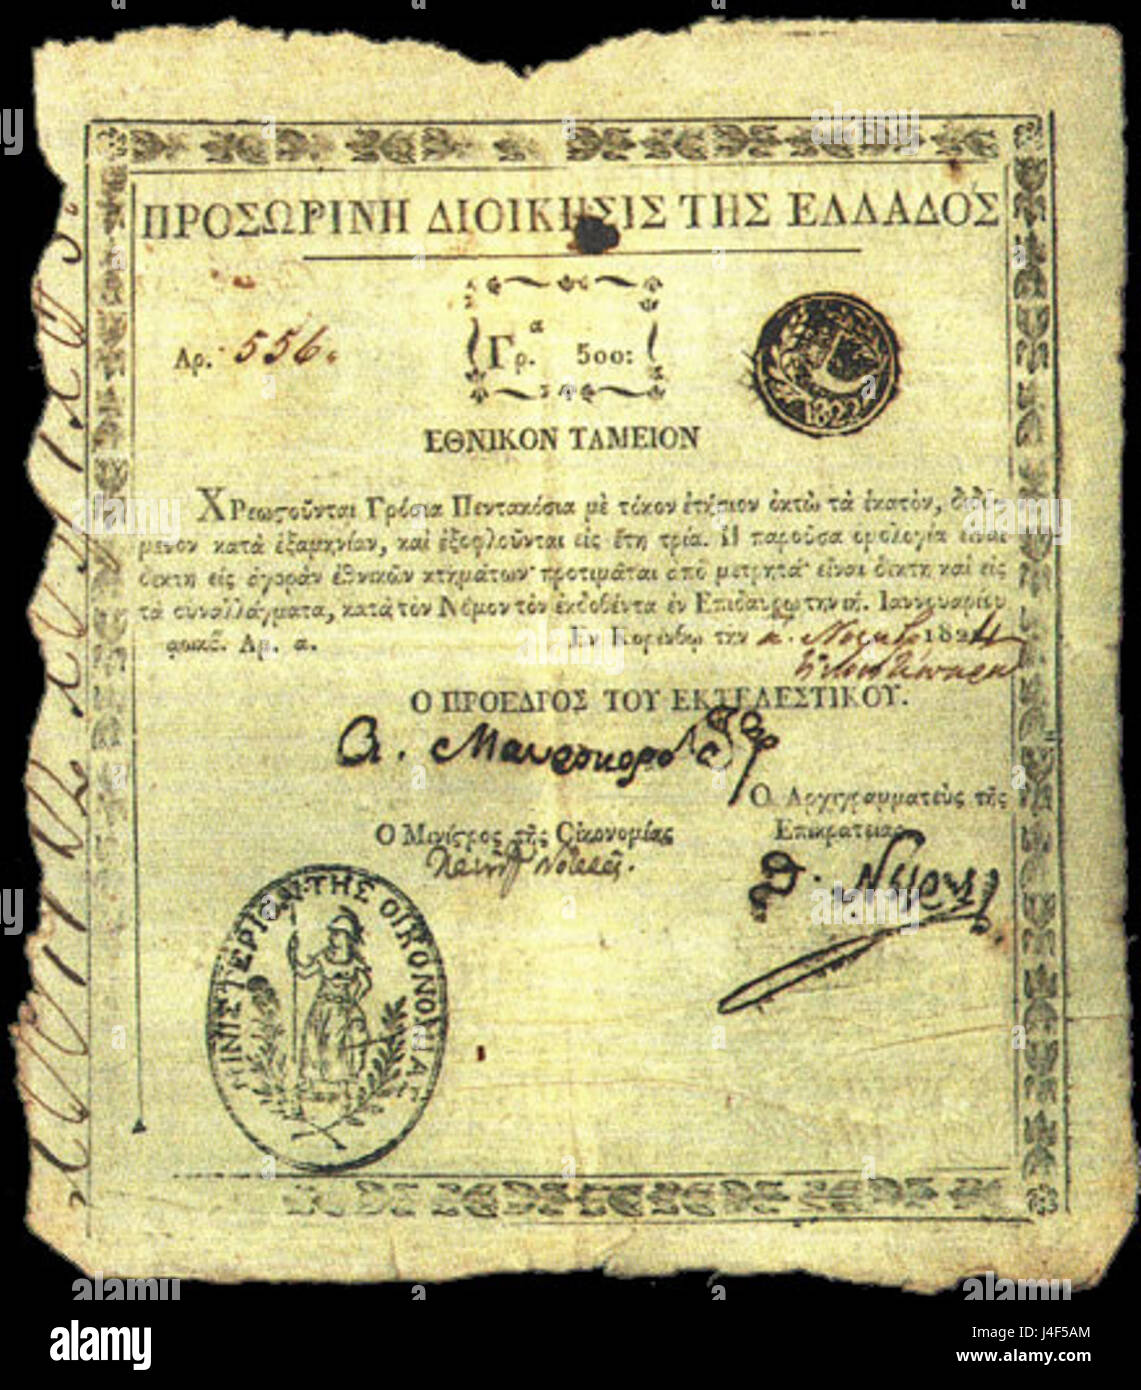 ΠΡΟΣΩΡΙΝΗ ΔΙΟΙΚΗΣΙΣ ΤΗΣ ΕΛΛΑΔΟΣ
Αρ. 556.
Γρ.α 500:
1822
ΕΘΝΙΚΟΝ ΤΑΜΕΙΟΝ
ΧΡεωςοῦνται Γρόσια Πεντακόσια μὲ τόκον ἐτήσιον ὀκτὼ τὰ ἑκατὸν, διδό-
μενον κατὰ ἑξαμηνίαν, καὶ ἐξοφλοῦνται εἰς ἔτη τρία. Η παροῦσα ομολογία εἶναι
δεκτὴ εἰς ἀγορὰν ἐθνικῶν κτημάτων· προτιμᾶται ἀπὸ μετρητά· εἶναι δεκτὴ καὶ εἰς
τὰ συναλλάγματα, κατὰ τὸν Νόμον τὸν ἐκδοθέντα ἐν Επιδαύρῳ τὴν Ιαννουαρίου
αωκβ. Αρ. α. Εν Κορίνθῳ τῇν 182
Ο ΠΡΟΕΔΡΟΣ ΤΟΥ ΕΚΤΕΛΕΣΤΙΚΟΥ.
Α. Μαυροκορδ
Ο Αρχιγραμματεὺς τῆς
Επικρατείας
Ο Μινίςρος τῆς Οἰκονομίας
Θ. Νέγρης
ΜΙΝΙΣΤΕΡΙΟΝ ΤΗΣ ΟΙΚΟΝΟΜΙΑΣ
alamy
Image ID: J4F5AM
www.alamy.com